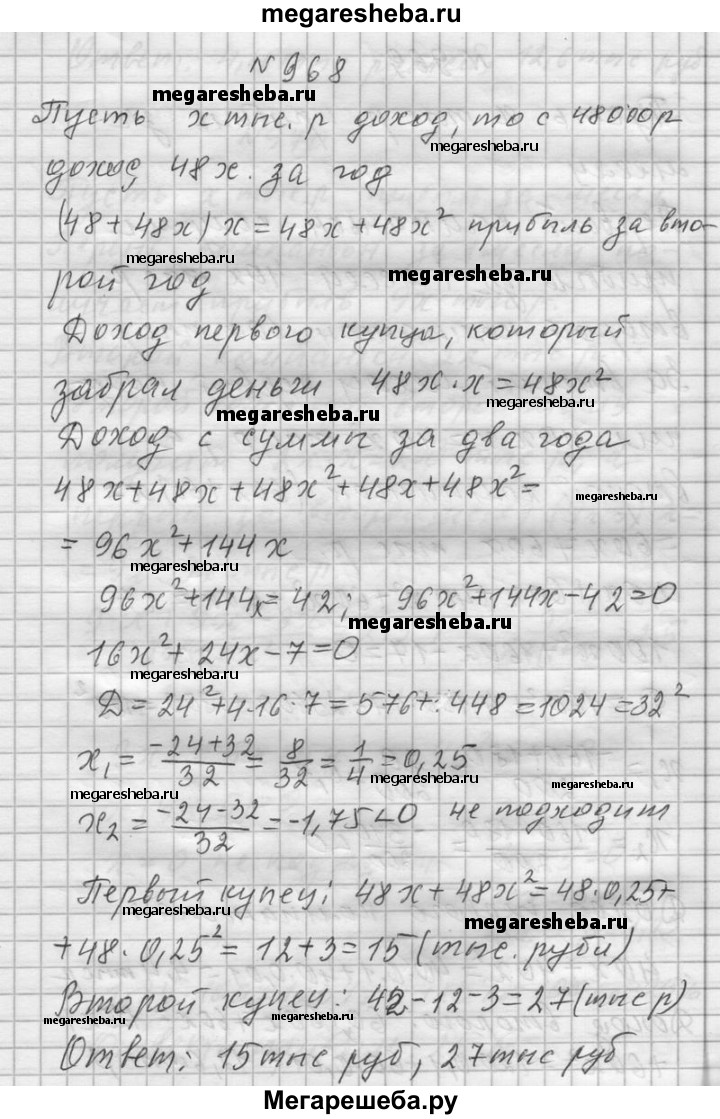 megaresheba.ru
№968
megaresheba.ru
Пусть x тыс. р доход, то с 48000р
megaresheba.ru
доход 48x. за год
(48 + 48x) x = 48x + 48x² прибыль за вто-
megaresheba.ru
megaresheba.ru
рой год
Доход первого купца, который
забрал деньги 48x · x = 48x²
megaresheba.ru
megaresheba.ru
Доход с суммы за два года
48x + 48x + 48x² + 48x + 48x² =
megaresheba.ru
= 96x² + 144x
megaresheba.ru
96x² + 144x = 42; 96x² + 144x - 42 = 0
megaresheba.ru
16x² + 24x - 7 = 0
megaresheba.ru
Д = 24² + 4·16·7 = 576 + 448 = 1024 = 32²
x₁ = (-24+32)/32 = 8/32 = 1/4 = 0,25
megaresheba.ru
megaresheba.ru
megaresheba.ru
x₂ = (-24-32)/32 = -1,75 < 0 не подходит
Первый купец: 48x + 48x² = 48·0,25+
megaresheba.ru
megaresheba.ru
+48·0,25² = 12+3=15 (тыс. рубл)
Второй купец: 42-12-3=27(тыс р)
megaresheba.ru
megaresheba.ru
Ответ: 15тыс руб, 27тыс руб
Мегарешеба.ру